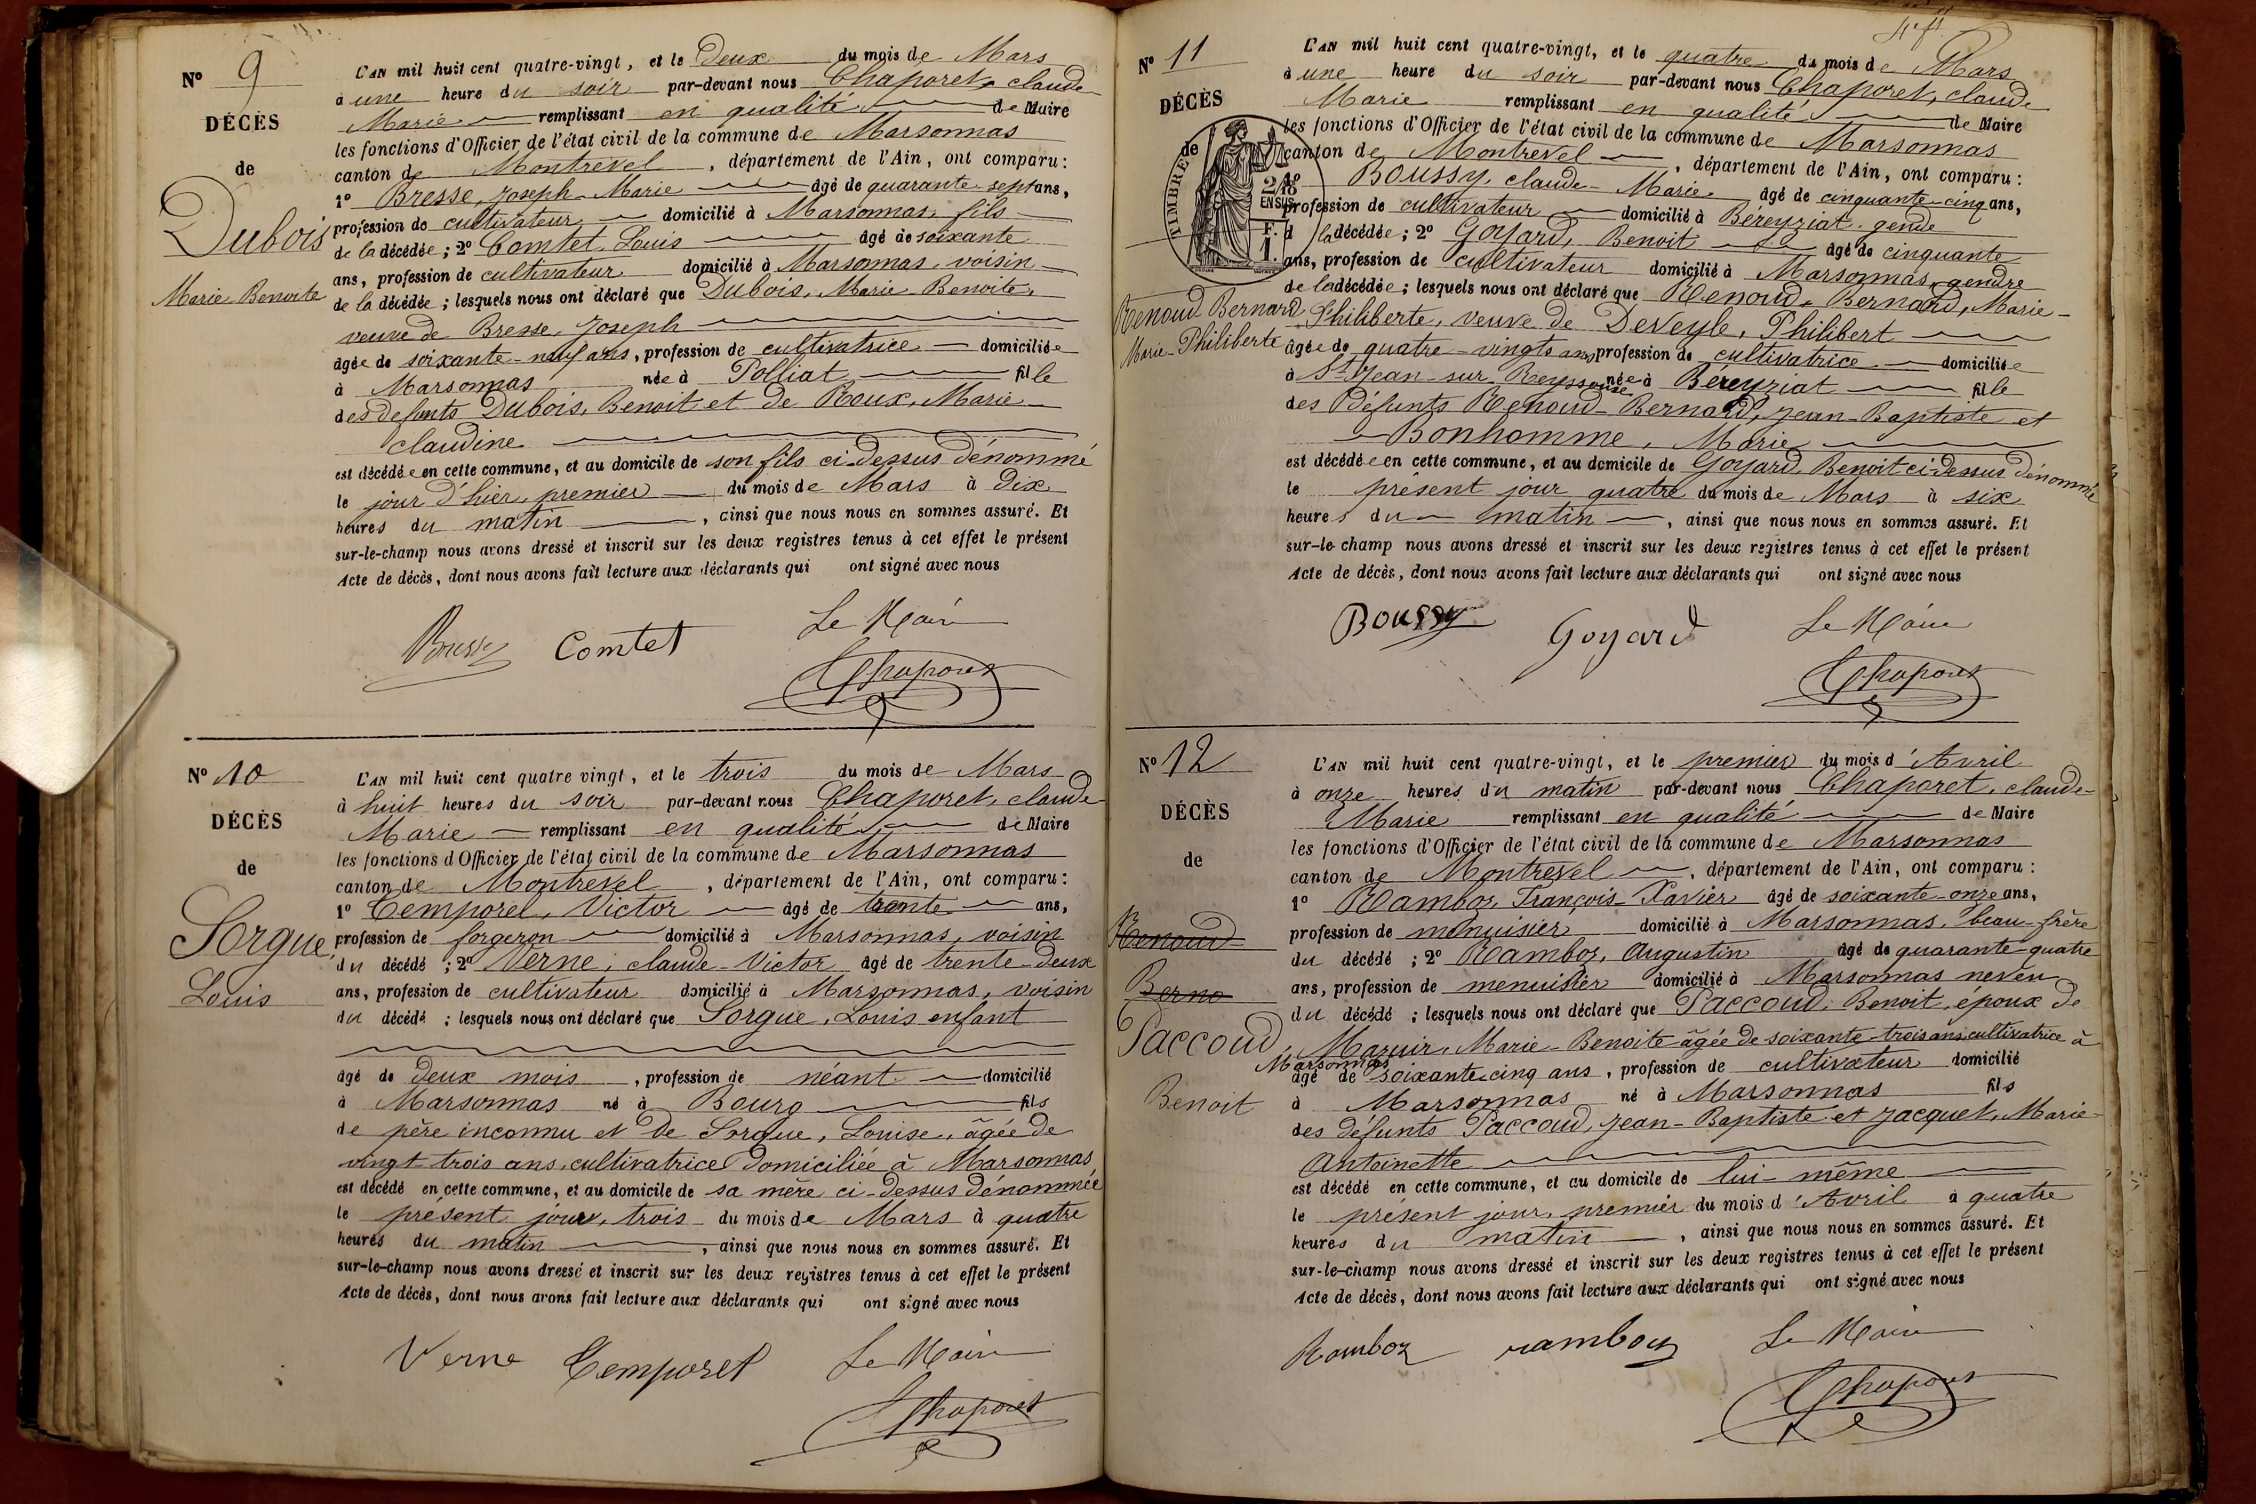 N° 9
DÉCÈS
de
Dubois
Marie Benoite
L'AN mil huit cent quatre-vingt, et le Deux du mois de Mars
à une heure du soir par-devant nous Chaporet, claude
Marie remplissant en qualité de Maire
les fonctions d'Officier de l'état civil de la commune de Marsonnas
canton de Montrevel, département de l'Ain, ont comparu :
1° Bresse, Joseph Marie âgé de quarante-sept ans,
profession de cultivateur domicilié à Marsonnas, fils
de la décédée ; 2° Comtet, Louis âgé de soixante
ans, profession de cultivateur domicilié à Marsonnas, voisin
de la décédée ; lesquels nous ont déclaré que Dubois, Marie Benoite,
veuve de Bresse, Joseph
âgée de soixante-neuf ans, profession de cultivatrice domiciliée
à Marsonnas née à Polliat fille
des defunts Dubois, Benoit et de Roux, Marie
claudine
est décédée en cette commune, et au domicile de son fils ci-dessus dénommé
le jour d'hier, premier du mois de Mars à dix
heures du matin, ainsi que nous nous en sommes assuré. Et
sur-le-champ nous avons dressé et inscrit sur les deux registres tenus à cet effet le présent
Acte de décès, dont nous avons fait lecture aux déclarants qui ont signé avec nous
Bresse Comtet Le Maire
Chaporet
N° 10
DÉCÈS
de
Sorgue,
Louis
L'AN mil huit cent quatre vingt, et le trois du mois de Mars
à huit heures du soir par-devant nous Chaporet, claude
Marie remplissant en qualité de Maire
les fonctions d'Officier de l'état civil de la commune de Marsonnas
canton de Montrevel, département de l'Ain, ont comparu :
1° Temporel, Victor âgé de trente ans,
profession de forgeron domicilié à Marsonnas, voisin
du décédé ; 2° Verne, claude-Victor âgé de trente-deux
ans, profession de cultivateur domicilié à Marsonnas, voisin
du décédé ; lesquels nous ont déclaré que Sorgue, Louis enfant
âgé de deux mois, profession de néant domicilié
à Marsonnas né à Bourg fils
de père inconnu et de Sorgue, Louise, âgée de
vingt-trois ans, cultivatrice domiciliée à Marsonnas
est décédé en cette commune, et au domicile de sa mère ci-dessus dénommée
le présent jour, trois du mois de Mars à quatre
heures du matin, ainsi que nous nous en sommes assuré. Et
sur-le-champ nous avons dressé et inscrit sur les deux registres tenus à cet effet le présent
Acte de décès, dont nous avons fait lecture aux déclarants qui ont signé avec nous
Verne Temporel Le Maire
Chaporet
N° 11
DÉCÈS
de
TIMBRE
2/10 EN SUS
F. 1.
Renoud Bernard
Marie-Philiberte
L'AN mil huit cent quatre-vingt, et le quatre du mois de Mars
à une heure du soir par-devant nous Chaporet, claude
Marie remplissant en qualité de Maire
les fonctions d'Officier de l'état civil de la commune de Marsonnas
canton de Montrevel, département de l'Ain, ont comparu :
1° Boussy, claude-Marie âgé de cinquante-cinq ans,
profession de cultivateur domicilié à Béreyziat gende
d la décédée ; 2° Goyard, Benoit âgé de cinquante
ans, profession de cultivateur domicilié à Marsonnas, gendre
de la décédée ; lesquels nous ont déclaré que Renoud-Bernard, Marie-
Philiberte, veuve de Deveyle, Philibert
âgée de quatre-vingts ans profession de cultivatrice domiciliée
à St Jean-sur-Reyssouze née à Béreyziat fille
des Défunts Renoud-Bernard, Jean-Baptiste et
Bonhomme, Marie
est décédée en cette commune, et au domicile de Goyard, Benoit ci-dessus dénommé
le présent jour quatre du mois de Mars à six
heures du matin, ainsi que nous nous en sommes assuré. Et
sur-le champ nous avons dressé et inscrit sur les deux registres tenus à cet effet le présent
Acte de décès, dont nous avons fait lecture aux déclarants qui ont signé avec nous
Boussy Goyard Le Maire
Chaporet
N° 12
DÉCÈS
de
Renoud
Berno
Paccoud
Benoit
L'AN mil huit cent quatre-vingt, et le premier du mois d'Avril
à onze heures du matin par-devant nous Chaporet, claude-
Marie remplissant en qualité de Maire
les fonctions d'Officier de l'état civil de la commune de Marsonnas
canton de Montrevel, département de l'Ain, ont comparu :
1° Ramboz, François-Xavier âgé de soixante-onze ans,
profession de menuisier domicilié à Marsonnas, beau-frère
du décédé ; 2° Ramboz, Augustin âgé de quarante-quatre
ans, profession de menuisier domicilié à Marsonnas neveu
du décédé ; lesquels nous ont déclaré que Paccoud, Benoit, époux de
Mazuir, Marie-Benoite âgée de soixante-trois ans, cultivatrice à
Marsonnas
âgé de soixante-cinq ans, profession de cultivateur domicilié
à Marsonnas né à Marsonnas fils
des défunts Paccoud, Jean-Baptiste et Jacquet, Marie
Antoinette
est décédé en cette commune, et au domicile de lui-même
le présent jour, premier du mois d'Avril à quatre
heures du matin, ainsi que nous nous en sommes assuré. Et
sur-le-champ nous avons dressé et inscrit sur les deux registres tenus à cet effet le présent
Acte de décès, dont nous avons fait lecture aux déclarants qui ont signé avec nous
Ramboz ramboz Le Maire
Chaporet